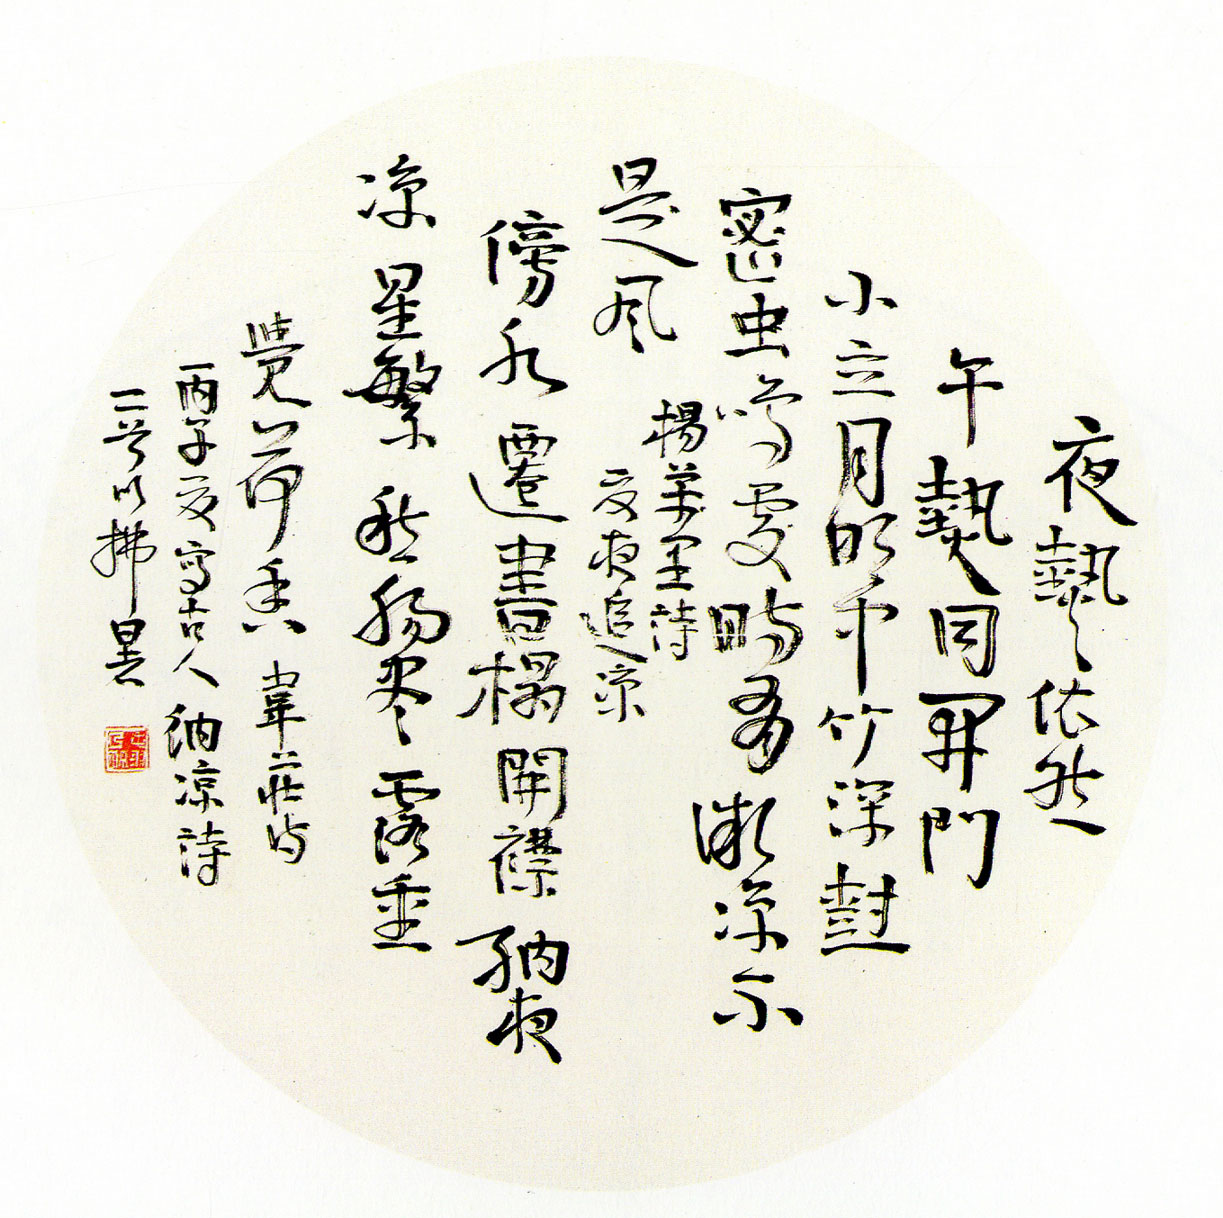 夜熱依然
午熱同開門
小立月明中竹深樹
密虫鳴處時有微涼不
是風
楊萬里詩
夏夜追涼
傍水遷書榻開襟納夜
涼星繁愁露重
覺荷香 韋莊詩
丙子夏寫古人納涼詩
以拂暑